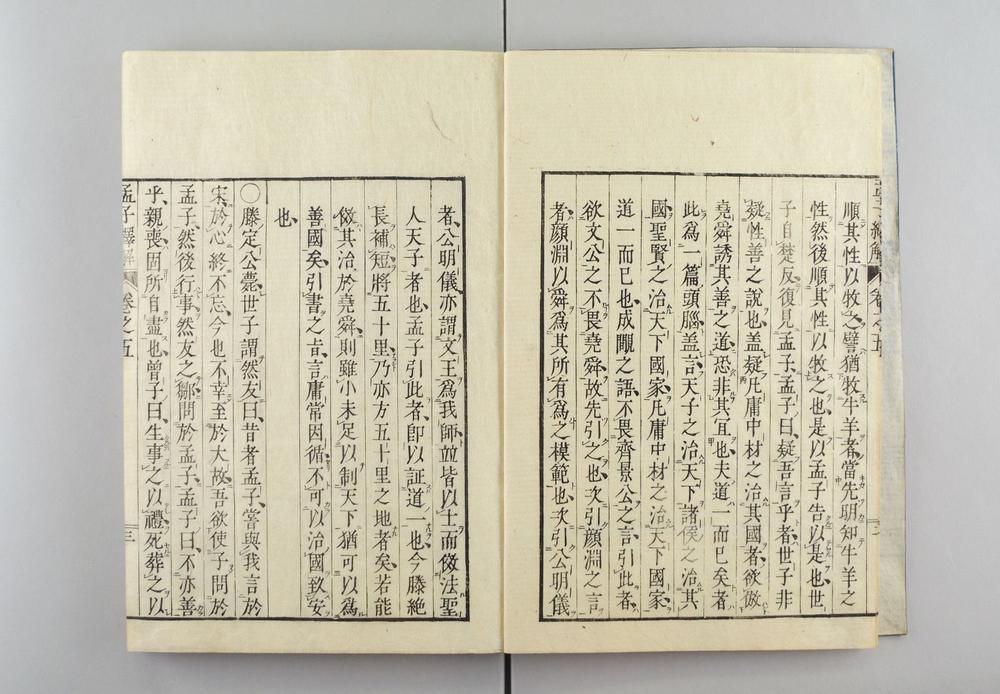 順其性以牧之譬猶牧牛羊者當先明知牛羊之
性然後順其性以牧之也是以孟子告以是也世
子自楚反復見孟子孟子曰疑吾言乎者世子非
疑性善之說也盖疑凡庸中材之治其國者欲倣
堯舜誘其善之道恐非其宜也夫道一而已矣者
此爲一篇頭腦盖言天子之治天下諸侯之治其
國聖賢之治天下國家凡庸中材之治天下國家
道一而已也成覸之語不畏齊景公之言引此者
欲文公之不畏堯舜故先引之也次引顏淵之言
者顏淵以舜爲其所有爲之模範也次引公明儀
者公明儀亦謂文王爲我師並皆以士而倣法聖
人天子者也孟子引此者即以証道一也今滕絶
長補短將五十里乃亦方五十里之地者矣若能
倣其治於堯舜則雖小未足以制天下猶可以爲
善國矣引書之旨言庸常因循不可以治國致安
也
○滕定公薨世子謂然友曰昔者孟子嘗與我言於
宋於心終不忘今也不幸至於大故吾欲使子問於
孟子然後行事然友之鄒問於孟子孟子曰不亦善
乎親喪固所自盡也曾子曰生事之以禮死葬之以
孟子繹解 卷之五 三